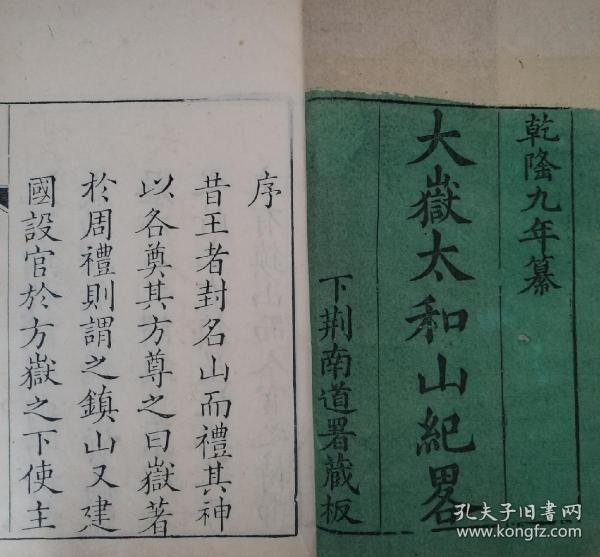 乾隆九年纂
大嶽太和山紀畧
下荆南道署藏板
序
昔王者封名山而禮其神
以各奠其方尊之曰嶽著
於周禮則謂之鎮山又建
國設官於方嶽之下使主
孔夫子旧书网
kongfz.com